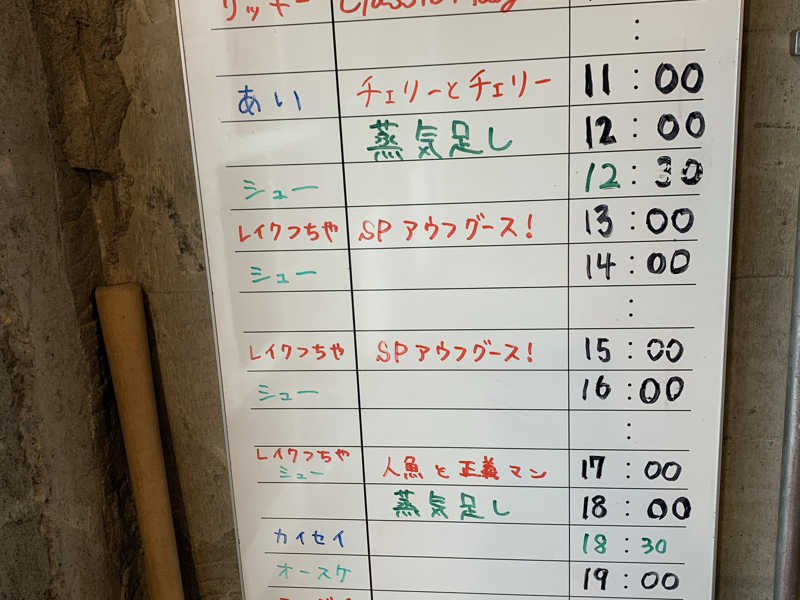 リッキー Classic
:
あい チェリーとチェリー 11:00
蒸気足し 12:00
シュー 12:30
レイクつちや SP アウフグース! 13:00
シュー 14:00
:
レイクつちや SP アウフグース! 15:00
シュー 16:00
:
レイクつちや
シュー 人魚と正義マン 17:00
蒸気足し 18:00
カイセイ 18:30
オースケ 19:00